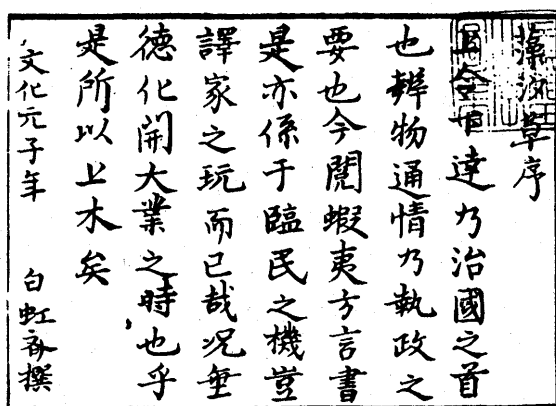 藻汐草序
上令下達乃治國之首
也辨物通情乃執政之
要也今閲蝦夷方言書
是亦係于臨民之機豈
譯家之玩而已哉况垂
德化開大業之時也乎
是所以上木矣
文化元子年 白虹斎撰